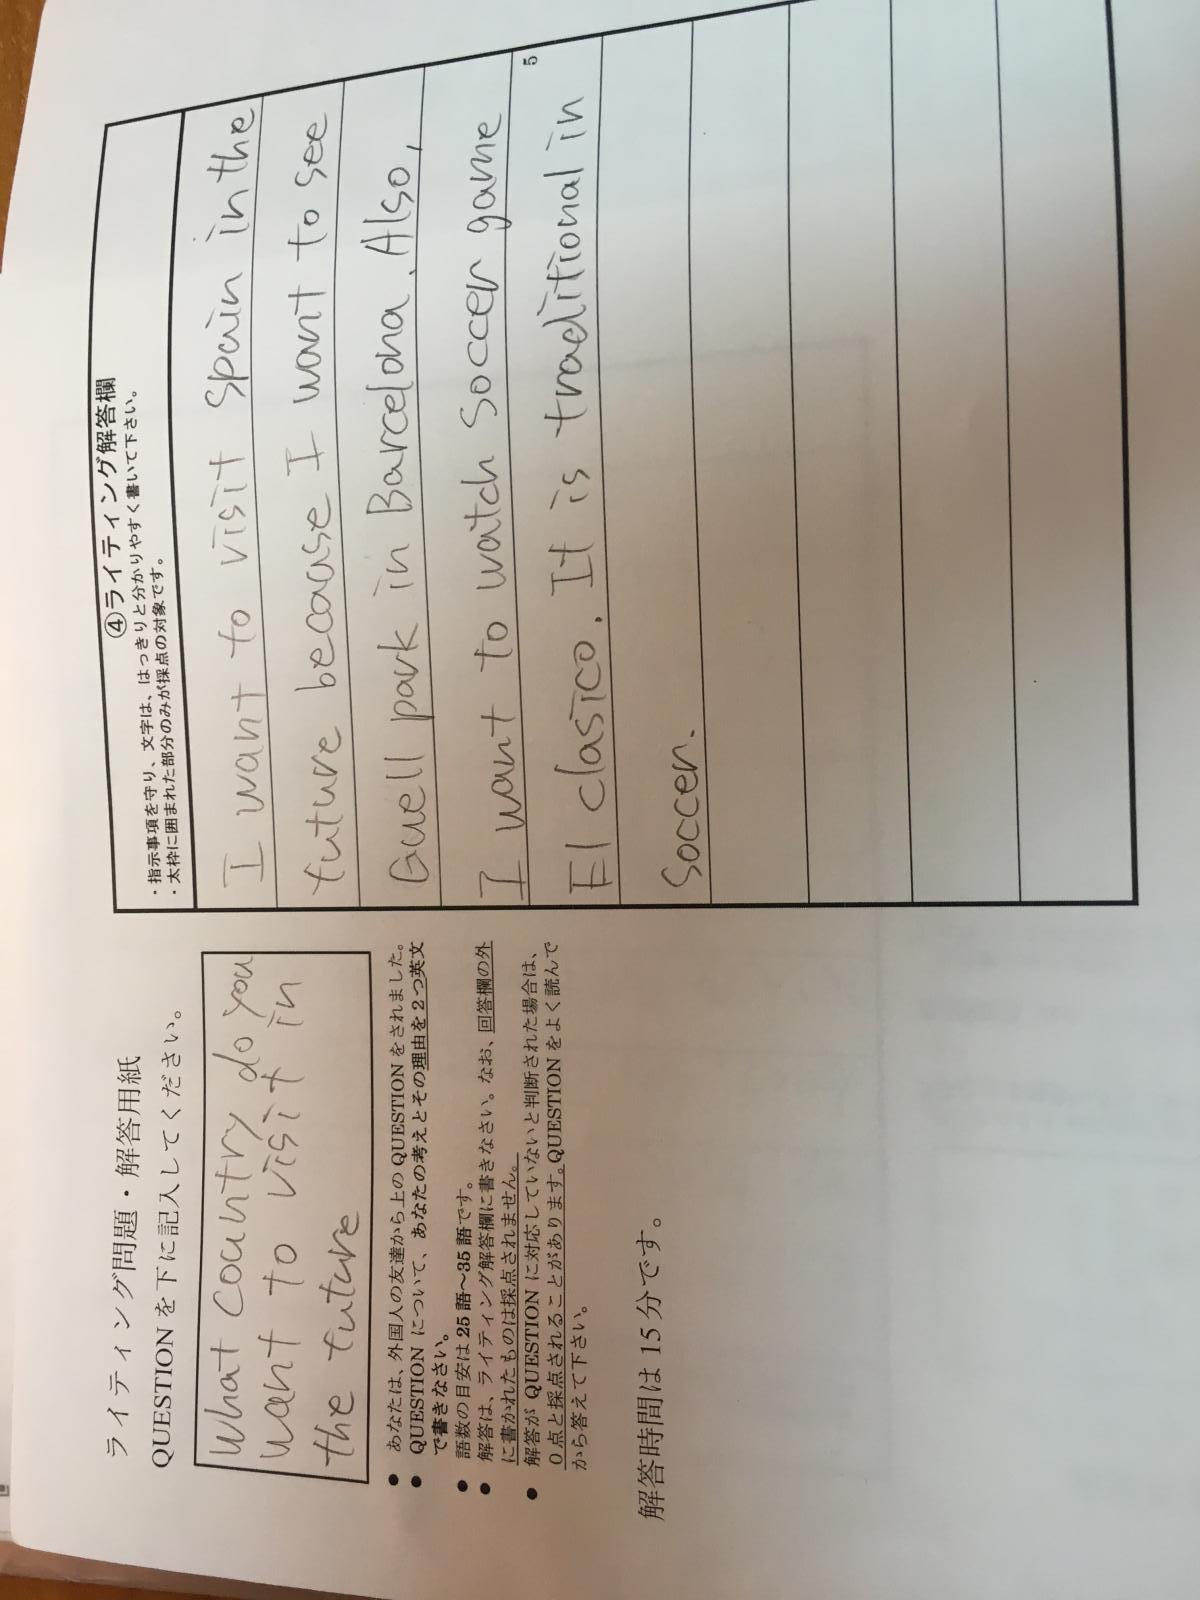 ライティング問題・解答用紙
QUESTIONを下に記入してください。
What country do you
want to visit in
the future
● あなたは、外国人の友達から上のQUESTIONをされました。
● QUESTIONについて、あなたの考えとその理由を2つ英文
で書きなさい。
● 語数の目安は25語～35語です。
● 解答は、ライティング解答欄に書きなさい。なお、回答欄の外
に書かれたものは採点されません。
● 解答がQUESTIONに対応していないと判断された場合は、
0点と採点されることがあります。QUESTIONをよく読んで
から答えて下さい。
解答時間は15分です。
④ライティング解答欄
・指示事項を守り、文字は、はっきりと分かりやすく書いて下さい。
・太枠に囲まれた部分のみが採点の対象です。
I want to visit Spain in the
future because I want to see
Guell park in Barcelona. Also,
I want to watch soccer game
5
El clasico. It is traditional in
soccer.